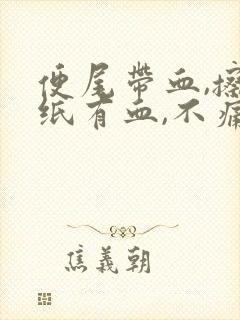 便尾带血,擦
纸有血,不痛
焦義朝